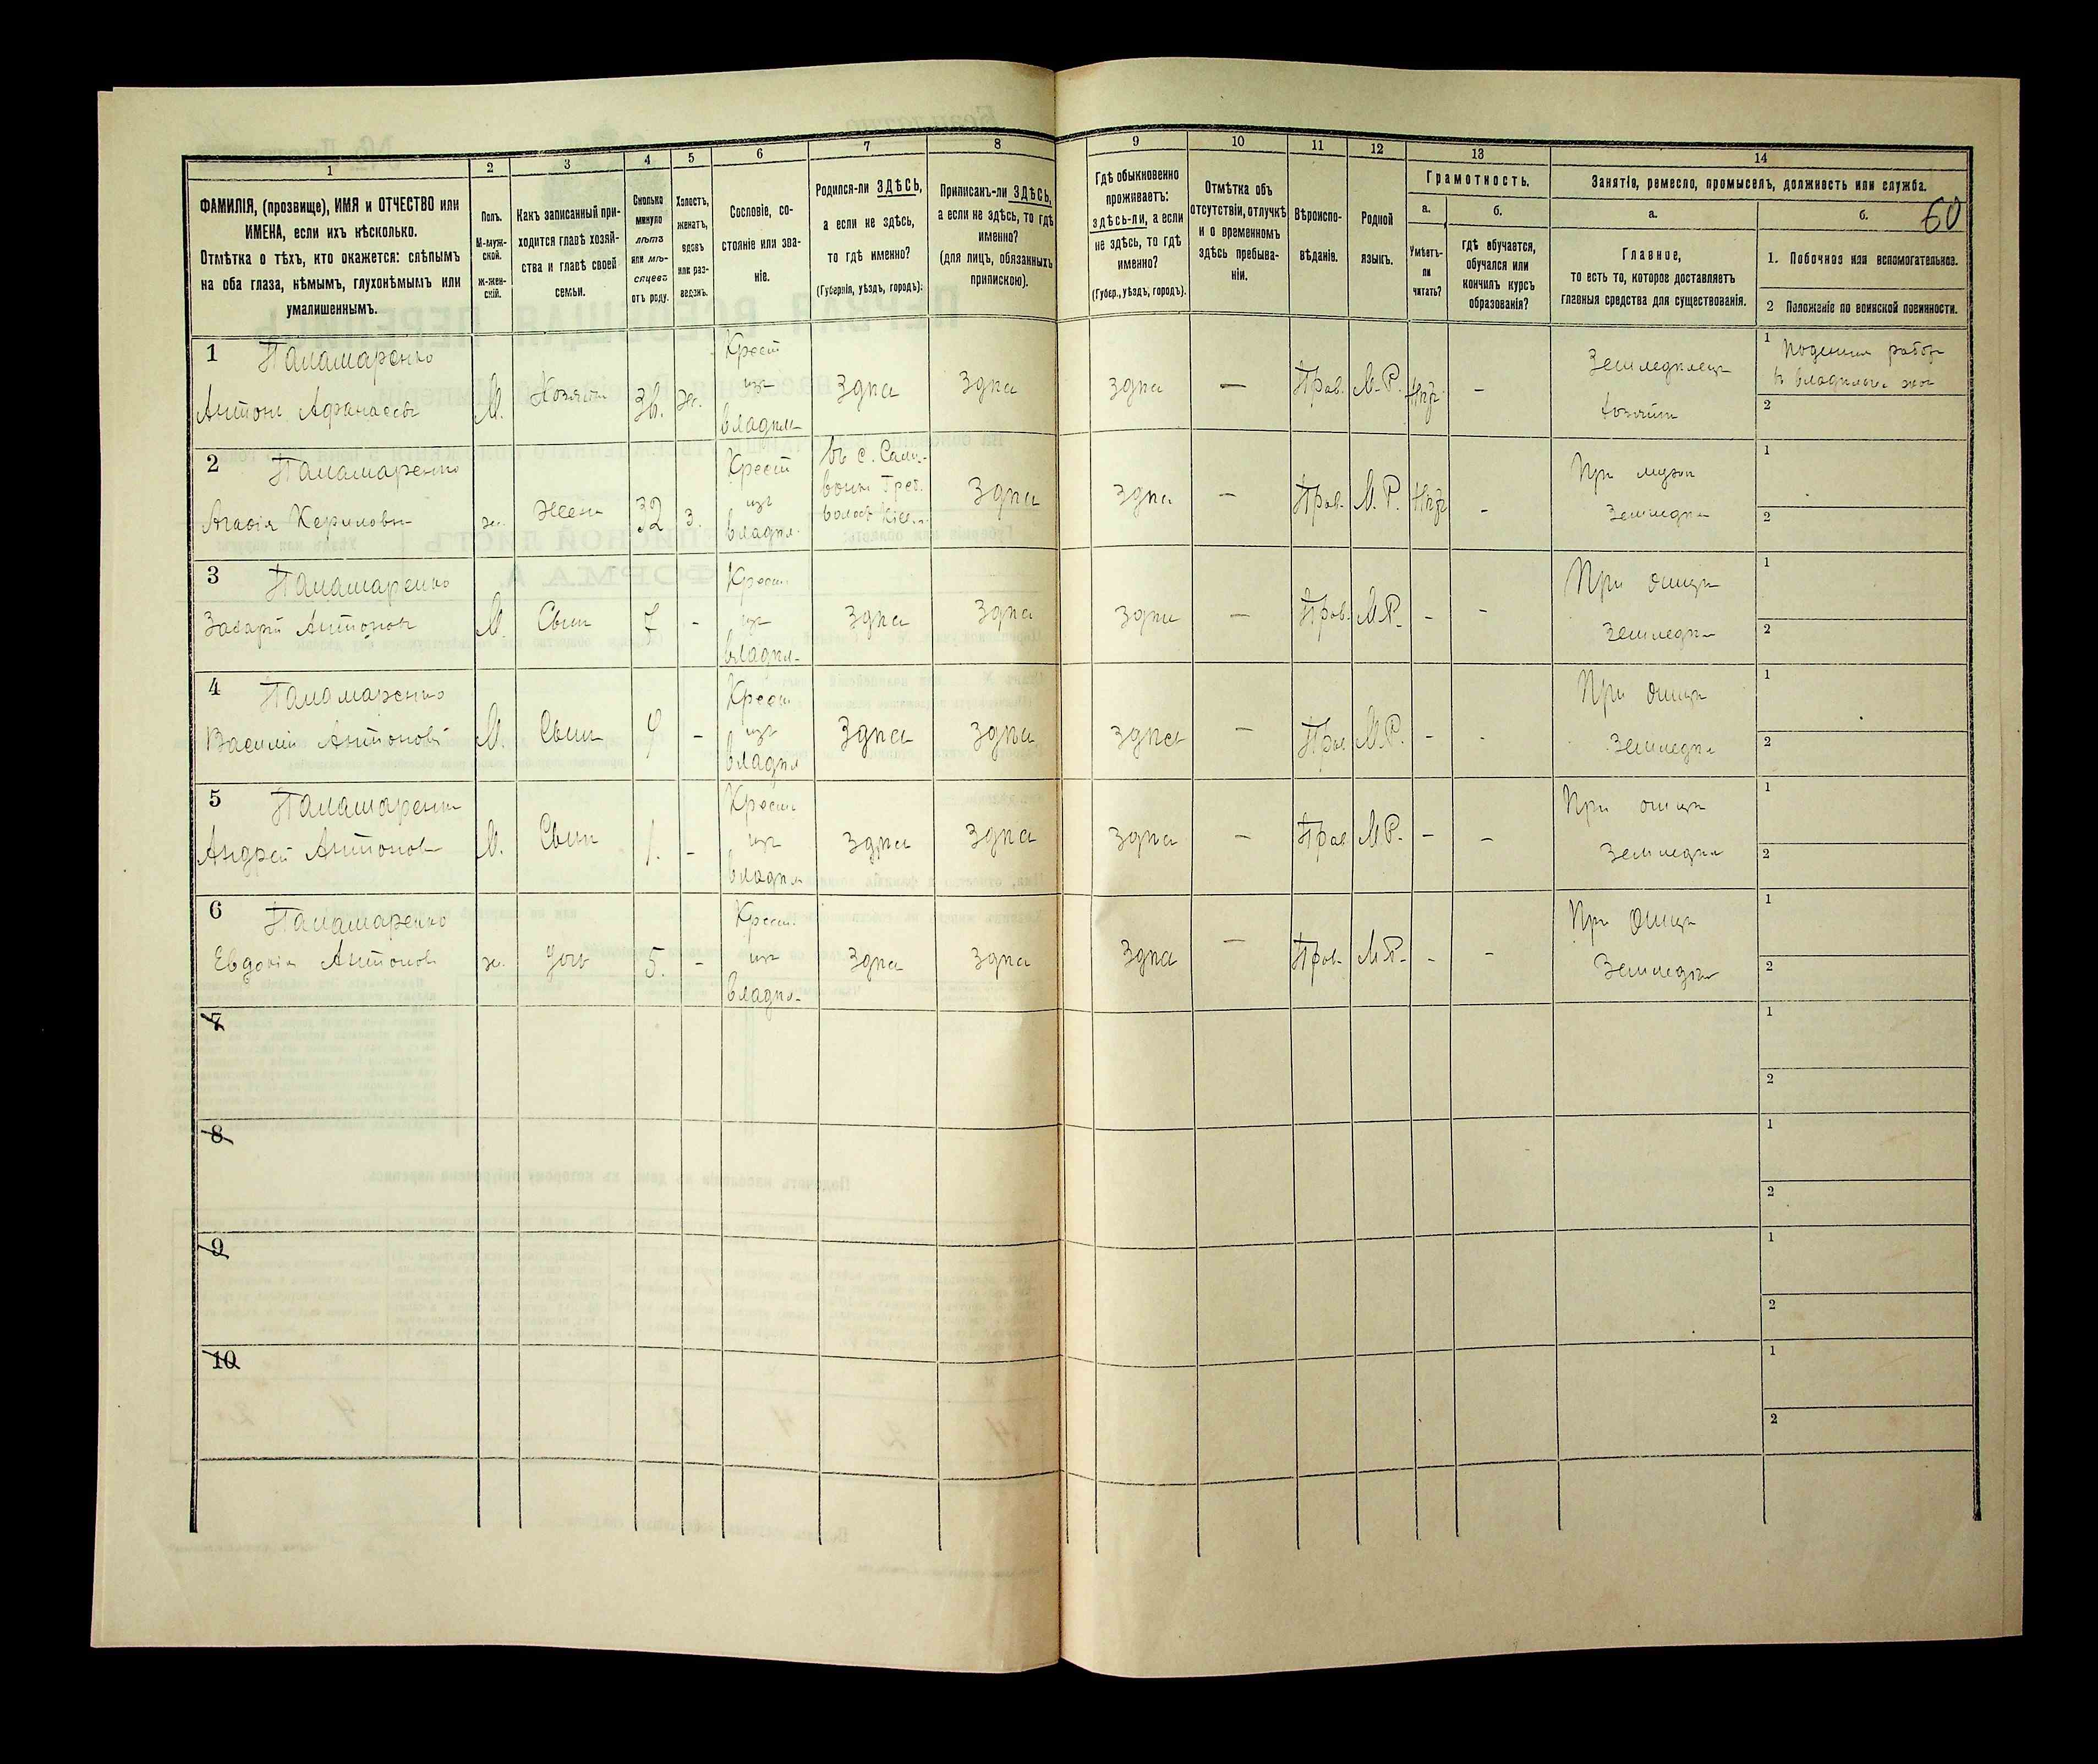 1 2 3 4 5 6 7 8 9 10 11 12 13 14
ФАМИЛІЯ, (прозвище), ИМЯ и ОТЧЕСТВО или
ИМЕНА, если ихъ нѣсколько.
Отмѣтка о тѣхъ, кто окажется: слѣпымъ
на оба глаза, нѣмымъ, глухонѣмымъ или
умалишеннымъ.
Полъ.
М-муж-
ской.
ж-жен-
скій.
Какъ записанный при-
ходится главѣ хозяй-
ства и главѣ своей
семьи.
Сколько
минуло
лѣтъ
или мѣ-
сяцевъ
отъ роду.
Холостъ,
женатъ,
вдовъ
или раз-
веденъ.
Сословіе, со-
стояніе или зва-
ніе.
Родился-ли ЗДѢСЬ,
а если не здѣсь,
то гдѣ именно?
(Губернія, уѣздъ, городъ).
Приписанъ-ли ЗДѢСЬ,
а если не здѣсь, то гдѣ
именно?
(для лицъ, обязанныхъ
припискою).
Гдѣ обыкновенно
проживаетъ:
здѣсь-ли, а если
не здѣсь, то гдѣ
именно?
(Губер., уѣздъ, городъ).
Отмѣтка объ
отсутствіи, отлучкѣ
и о временномъ
здѣсь пребыва-
ніи.
Вѣроиспо-
вѣданіе.
Родной
языкъ.
Грамотность.
а.
Умѣетъ-
ли
читать?
б.
гдѣ обучается,
обучался или
кончилъ курсъ
образованія?
Занятіе, ремесло, промыселъ, должность или служба.
а.
Главное,
то есть то, которое доставляетъ
главныя средства для существованія.
б.
60
1. Побочное или вспомогательное.
2 Положеніе по воинской повинности.
1 Паламаренко
Антонъ Афанасьевъ
М.
Хозяинъ
ж.
Крест
изъ
владѣл
здѣсь
здѣсь
здѣсь
—
Прав.
М.Р.
Нѣтъ
-
Земледѣлецъ
хозяинъ
1
2
2 Паламаренко
Агафія
ж.
Жена
32
з.
Крест
изъ
владѣл.
въ с.
здѣсь
здѣсь
—
Прав.
М.Р.
Нѣтъ
-
При мужѣ
Земледѣл
1
2
3 Паламаренко
Захарій Антоновъ
М.
Сынъ
7
-
Крест.
изъ
владѣл.
здѣсь
здѣсь
здѣсь
—
Прав.
М.Р.
-
-
При отцѣ
Земледѣл
1
2
4 Паламаренко
Василій Антоновъ
М.
Сынъ
-
Крест
изъ
владѣл
здѣсь
здѣсь
здѣсь
—
Прав
М.Р.
-
-
При отцѣ
Земледѣл
1
2
5 Паламаренко
Андрей Антоновъ
М.
Сынъ
1.
-
Крест
изъ
владѣл
здѣсь
здѣсь
здѣсь
—
Прав
М.Р.
-
-
При отцѣ
Земледѣл
1
2
6 Паламаренко
Евдокія Антонов
ж.
дочь
5.
-
Крест.
изъ
владѣл.
здѣсь
здѣсь
здѣсь
—
Прав.
М.Р.
-
-
При отцѣ
Земледѣл
1
2
7
1
2
8
1
2
9
1
2
10
1
2